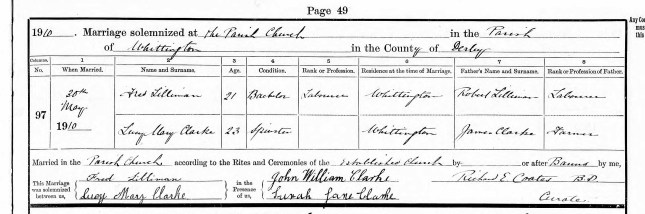 Page 49
1910. Marriage solemnized at the Parish Church in the Parish
of Whittington in the County of Derby
Columns, 1 2 3 4 5 6 7 8
No. When Married. Name and Surname. Age. Condition. Rank or Profession. Residence at the time of Marriage. Father's Name and Surname. Rank or Profession of Father.
20th May 1910
97
Fred Lilliman 21 Bachelor Labourer Whittington Robert Lilliman Labourer
Lucy Mary Clarke 23 Spinster Whittington James Clarke Farmer
Married in the Parish Church according to the Rites and Ceremonies of the Established Church by or after Banns by me,
This Marriage was solemnized between us, Fred Lilliman
Lucy Mary Clarke
in the Presence of us, John William Clarke
Sarah Jane Clarke
Richard E. Coates B.D.
Curate.
Any
mus
this